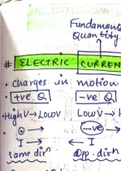 Fundamental
Quantity.
# ELECTRIC CURREN
• Charges in motion
+ve Q -ve Q
• High V → Low V Low V → H
⊕ → ⊖ →
I → I ←
same dirn opp. dirn